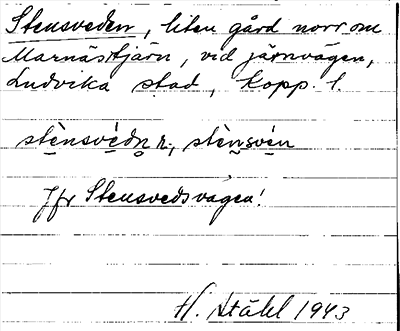 Stensveden, liten gård norr om
Marnästjärn, vid järnvägen,
Ludvika stad, Kopp. l.
stènsvédn̥ n., stènsvén
Jfr Stensvedsvägen!
H. Ståhl 1943